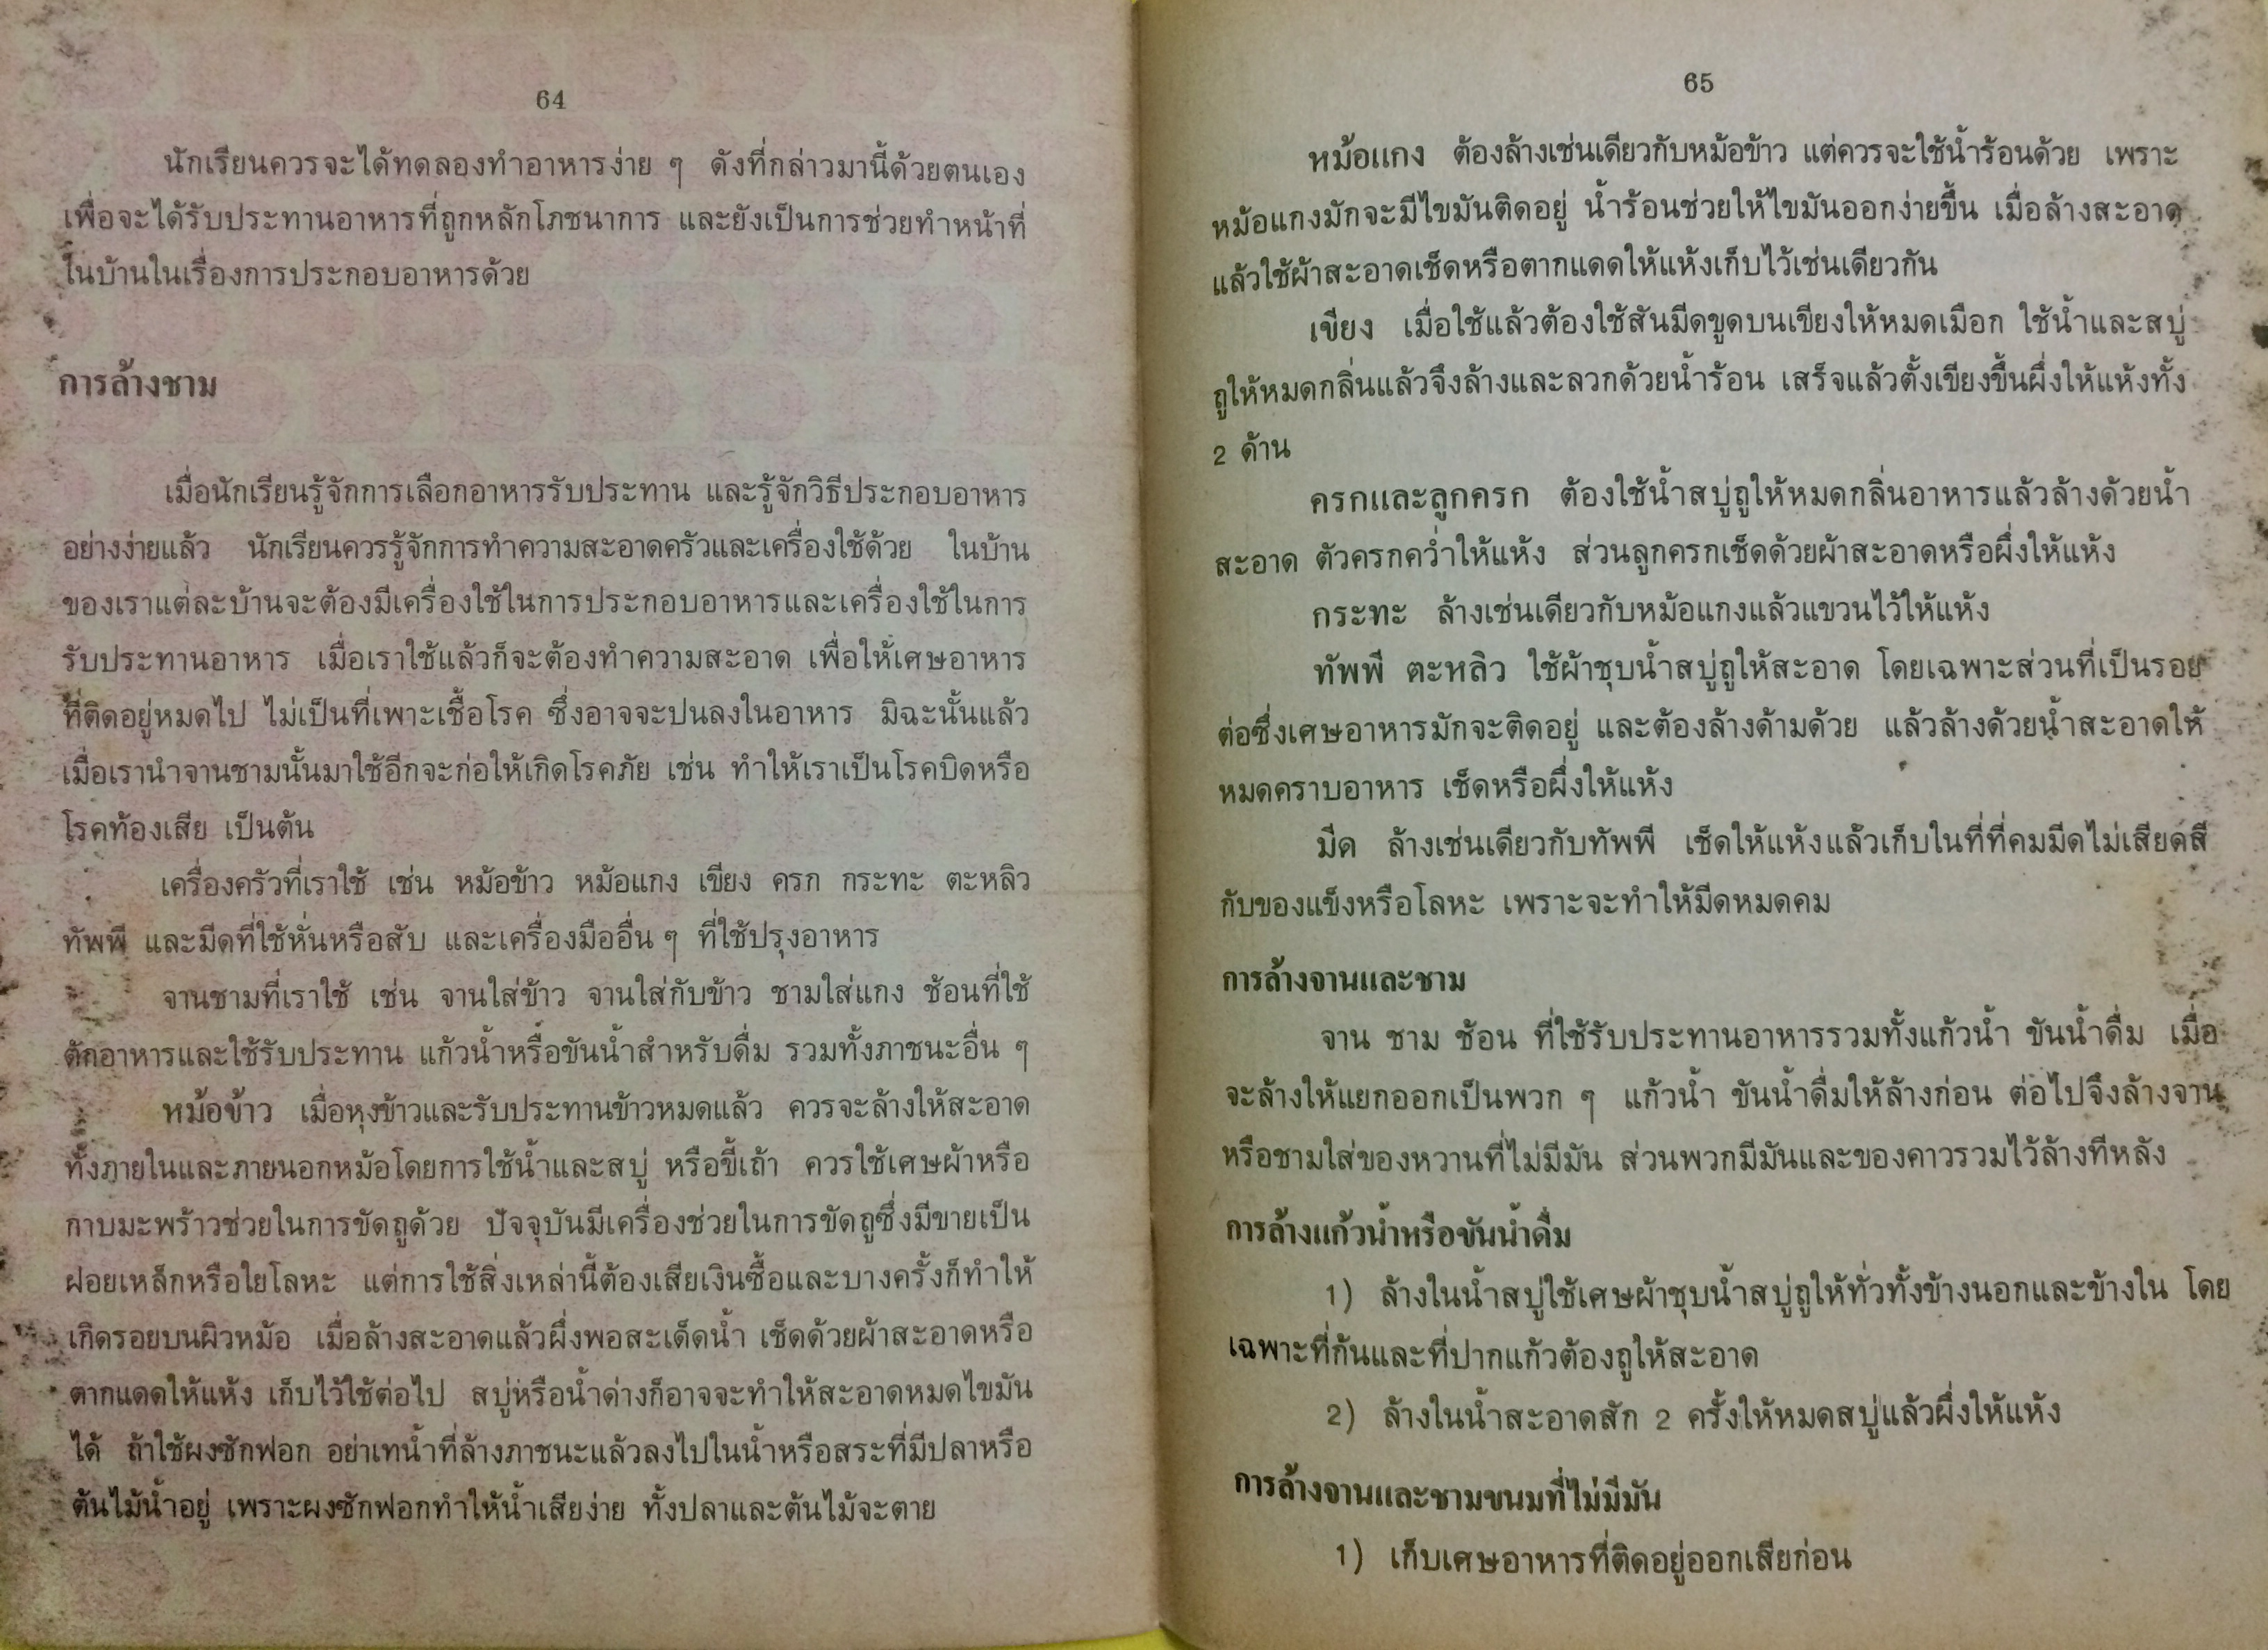 64
นักเรียนควรจะได้ทดลองทำอาหารง่าย ๆ ดังที่กล่าวมานี้ด้วยตนเอง
เพื่อจะได้รับประทานอาหารที่ถูกหลักโภชนาการ และยังเป็นการช่วยทำหน้าที่
ในบ้านในเรื่องการประกอบอาหารด้วย
การล้างชาม
เมื่อนักเรียนรู้จักการเลือกอาหารรับประทาน และรู้จักวิธีประกอบอาหาร
อย่างง่ายแล้ว นักเรียนควรรู้จักการทำความสะอาดครัวและเครื่องใช้ด้วย ในบ้าน
ของเราแต่ละบ้านจะต้องมีเครื่องใช้ในการประกอบอาหารและเครื่องใช้ในการ
รับประทานอาหาร เมื่อเราใช้แล้วก็จะต้องทำความสะอาด เพื่อให้เศษอาหาร
ที่ติดอยู่หมดไป ไม่เป็นที่เพาะเชื้อโรค ซึ่งอาจจะปนลงในอาหาร มิฉะนั้นแล้ว
เมื่อเรานำจานชามนั้นมาใช้อีกจะก่อให้เกิดโรคภัย เช่น ทำให้เราเป็นโรคบิดหรือ
โรคท้องเสีย เป็นต้น
เครื่องครัวที่เราใช้ เช่น หม้อข้าว หม้อแกง เขียง ครก กระทะ ตะหลิว
ทัพพี และมีดที่ใช้หั่นหรือสับ และเครื่องมืออื่น ๆ ที่ใช้ปรุงอาหาร
จานชามที่เราใช้ เช่น จานใส่ข้าว จานใส่กับข้าว ชามใส่แกง ช้อนที่ใช้
ตักอาหารและใช้รับประทาน แก้วน้ำหรือขันน้ำสำหรับดื่ม รวมทั้งภาชนะอื่น ๆ
หม้อข้าว เมื่อหุงข้าวและรับประทานข้าวหมดแล้ว ควรจะล้างให้สะอาด
ทั้งภายในและภายนอกหม้อโดยการใช้น้ำและสบู่ หรือขี้เถ้า ควรใช้เศษผ้าหรือ
กาบมะพร้าวช่วยในการขัดถูด้วย ปัจจุบันมีเครื่องช่วยในการขัดถูซึ่งมีขายเป็น
ฝอยเหล็กหรือใยโลหะ แต่การใช้สิ่งเหล่านี้ต้องเสียเงินซื้อและบางครั้งก็ทำให้
เกิดรอยบนผิวหม้อ เมื่อล้างสะอาดแล้วผึ่งพอสะเด็ดน้ำ เช็ดด้วยผ้าสะอาดหรือ
ตากแดดให้แห้ง เก็บไว้ใช้ต่อไป สบู่หรือน้ำด่างก็อาจจะทำให้สะอาดหมดไขมัน
ได้ ถ้าใช้ผงซักฟอก อย่าเทน้ำที่ล้างภาชนะแล้วลงไปในน้ำหรือสระที่มีปลาหรือ
ต้นไม้น้ำอยู่ เพราะผงซักฟอกทำให้น้ำเสียง่าย ทั้งปลาและต้นไม้จะตาย
65
หม้อแกง ต้องล้างเช่นเดียวกับหม้อข้าว แต่ควรจะใช้น้ำร้อนด้วย เพราะ
หม้อแกงมักจะมีไขมันติดอยู่ น้ำร้อนช่วยให้ไขมันออกง่ายขึ้น เมื่อล้างสะอาด
แล้วใช้ผ้าสะอาดเช็ดหรือตากแดดให้แห้งเก็บไว้เช่นเดียวกัน
เขียง เมื่อใช้แล้วต้องใช้สันมีดขูดบนเขียงให้หมดเมือก ใช้น้ำและสบู่
ถูให้หมดกลิ่นแล้วจึงล้างและลวกด้วยน้ำร้อน เสร็จแล้วตั้งเขียงขึ้นผึ่งให้แห้งทั้ง
2 ด้าน
ครกและลูกครก ต้องใช้น้ำสบู่ถูให้หมดกลิ่นอาหารแล้วล้างด้วยน้ำ
สะอาด ตัวครกคว่ำให้แห้ง ส่วนลูกครกเช็ดด้วยผ้าสะอาดหรือผึ่งให้แห้ง
กระทะ ล้างเช่นเดียวกับหม้อแกงแล้วแขวนไว้ให้แห้ง
ทัพพี ตะหลิว ใช้ผ้าชุบน้ำสบู่ถูให้สะอาด โดยเฉพาะส่วนที่เป็นรอย
ต่อซึ่งเศษอาหารมักจะติดอยู่ และต้องล้างด้ามด้วย แล้วล้างด้วยน้ำสะอาดให้
หมดคราบอาหาร เช็ดหรือผึ่งให้แห้ง
มีด ล้างเช่นเดียวกับทัพพี เช็ดให้แห้งแล้วเก็บในที่ที่คมมีดไม่เสียดสี
กับของแข็งหรือโลหะ เพราะจะทำให้มีดหมดคม
การล้างจานและชาม
จาน ชาม ช้อน ที่ใช้รับประทานอาหารรวมทั้งแก้วน้ำ ขันน้ำดื่ม เมื่อ
จะล้างให้แยกออกเป็นพวก ๆ แก้วน้ำ ขันน้ำดื่มให้ล้างก่อน ต่อไปจึงล้างจาน
หรือชามใส่ของหวานที่ไม่มีมัน ส่วนพวกมีมันและของคาวรวมไว้ล้างทีหลัง
การล้างแก้วน้ำหรือขันน้ำดื่ม
1) ล้างในน้ำสบู่ใช้เศษผ้าชุบน้ำสบู่ถูให้ทั่วทั้งข้างนอกและข้างใน โดย
เฉพาะที่ก้นและที่ปากแก้วต้องถูให้สะอาด
2) ล้างในน้ำสะอาดสัก 2 ครั้งให้หมดสบู่แล้วผึ่งให้แห้ง
การล้างจานและชามขนมที่ไม่มีมัน
1) เก็บเศษอาหารที่ติดอยู่ออกเสียก่อน